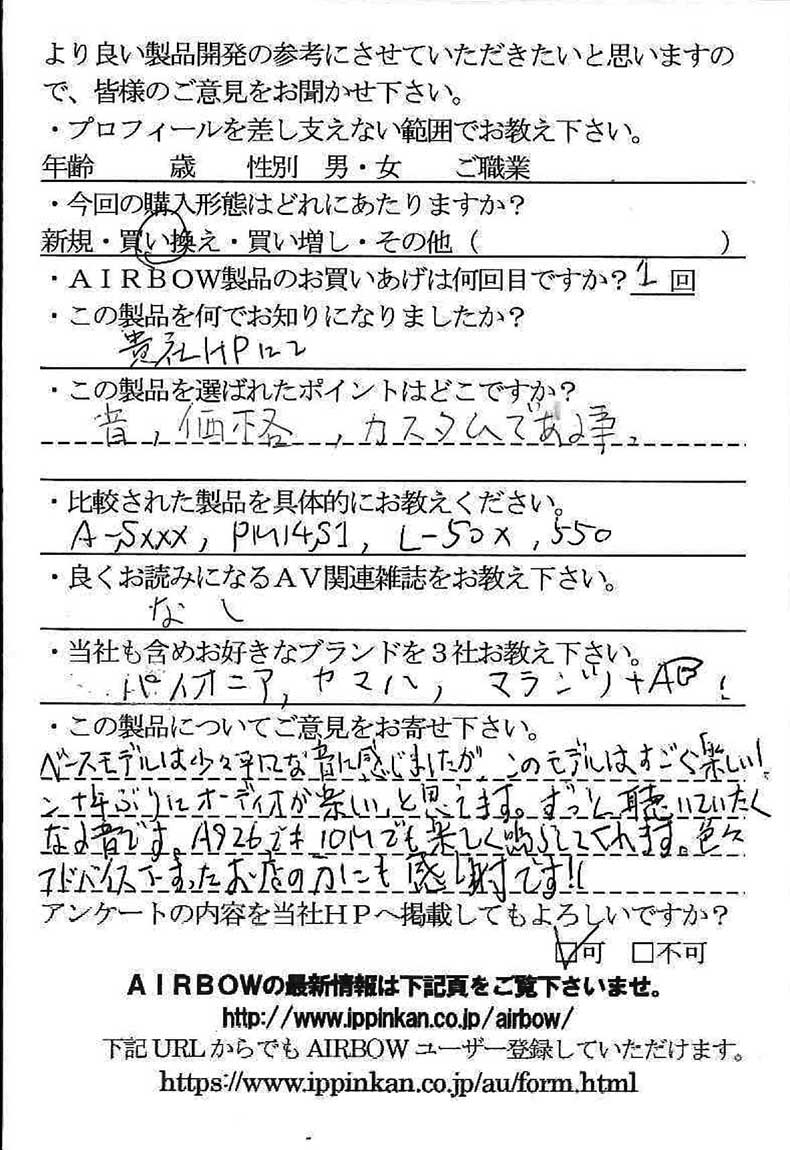 より良い製品開発の参考にさせていただきたいと思いますの
で、皆様のご意見をお聞かせ下さい。
・プロフィールを差し支えない範囲でお教え下さい。
年齢　　　歳　　性別　男・女　　ご職業
・今回の購入形態はどれにあたりますか？
新規・買い換え・買い増し・その他（　　　　　　　　　）
・ＡＩＲＢＯＷ製品のお買いあげは何回目ですか？1回
・この製品を何でお知りになりましたか？
貴社HPにて
・この製品を選ばれたポイントはどこですか？
音，価格，カスタムである事。
・比較された製品を具体的にお教えください。
A-Sxxx, PM14S1, L-50x, 550
・良くお読みになるＡＶ関連雑誌をお教え下さい。
なし
・当社も含めお好きなブランドを３社お教え下さい。
パイオニア, ヤマハ, マランツ
・この製品についてご意見をお寄せ下さい。
ベースモデルは少々平にな音に感じましたが、このモデルはすごく「楽しい！
十年ぶりにオーディオが楽しいと思えます。ずっと聴いていたく
なる音です。A926でも10Mでも楽しく鳴らしてくれます。色々
アドバイス下さったお店の方にも感謝です!!
アンケートの内容を当社ＨＰへ掲載してもよろしいですか？
☑可　□不可
ＡＩＲＢＯＷの最新情報は下記頁をご覧下さいませ。
http://www.ippinkan.co.jp/airbow/
下記URLからでもAIRBOWユーザー登録していただけます。
https://www.ippinkan.co.jp/au/form.html